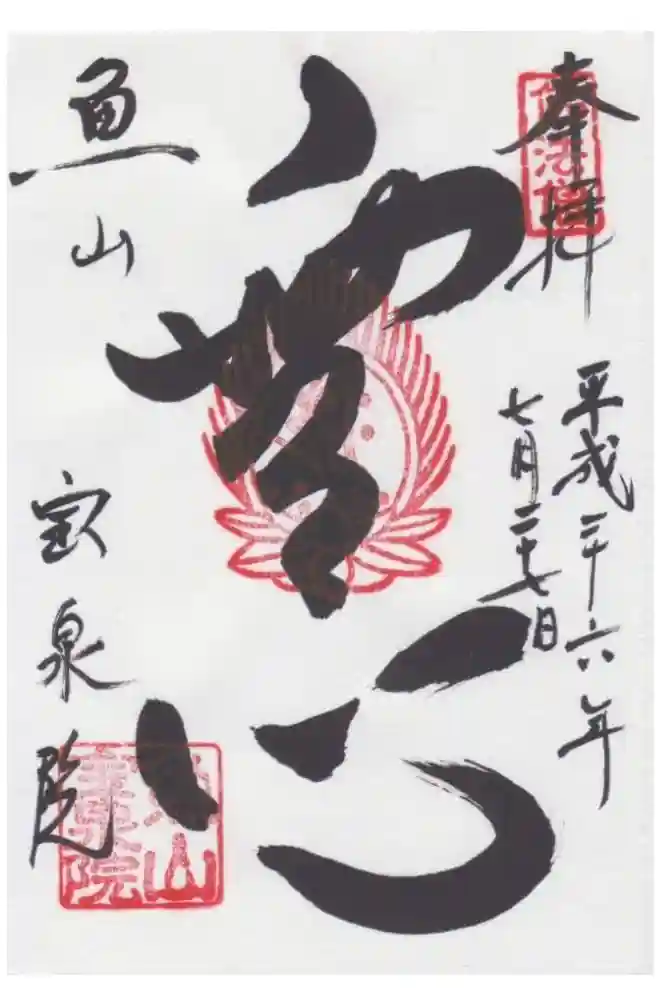 奉拝
佛法僧
平成二十六年
七月二十七日
無心
魚山
宝泉院
魚山
宝泉院